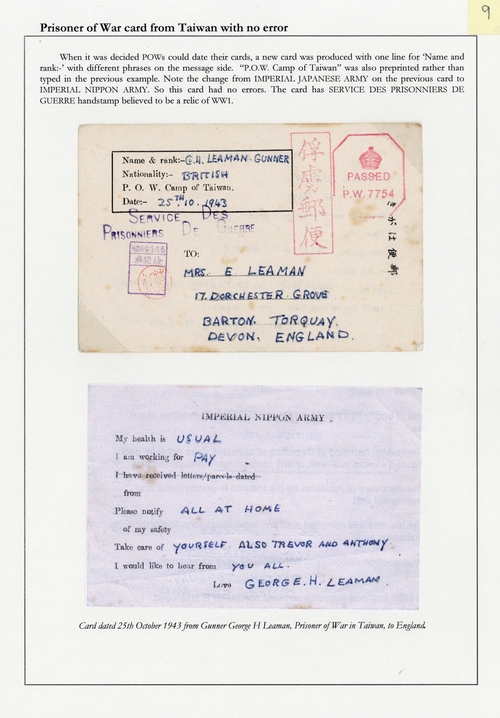 9
Prisoner of War card from Taiwan with no error
When it was decided POWs could date their cards, a new card was produced with one line for 'Name and
rank:-' with different phrases on the message side. "P.O.W. Camp of Taiwan" was also preprinted rather than
typed in the previous example. Note the change from IMPERIAL JAPANESE ARMY on the previous card to
IMPERIAL NIPPON ARMY. So this card had no errors. The card has SERVICE DES PRISONNIERS DE
GUERRE handstamp believed to be a relic of WW1.
Name & rank:-G.H. LEAMAN-GUNNER
Nationality:- BRITISH
P. O. W. Camp of Taiwan.
Date:- 25TH 10. 1943
俘虜郵便
PASSED
P.W. 7754
SERVICE DES
PRISONNIERS DE GUERRE
きがは便郵
TO:
MRS. E LEAMAN
17. DORCHESTER GROVE
BARTON. TORQUAY.
DEVON. ENGLAND.
IMPERIAL NIPPON ARMY.
My health is USUAL
I am working for PAY
I have received letters/parcels dated
from
Please notify ALL AT HOME
of my safety
Take care of YOURSELF. ALSO TREVOR AND ANTHONY.
I would like to hear from YOU ALL.
Love GEORGE. H. LEAMAN.
Card dated 25th October 1943 from Gunner George H Leaman, Prisoner of War in Taiwan, to England.